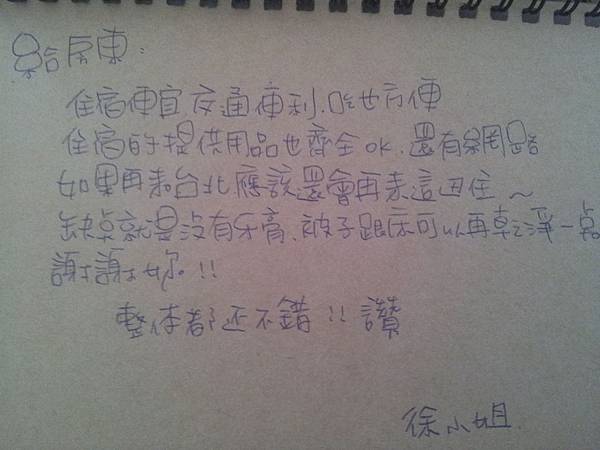 給房東:
住宿便宜交通便利.吃也方便
住宿的提供用品也齊全ok.還有網路
如果再來台北應該還會再來這边住~
缺点就是沒有牙膏、被子跟床可以再乾淨一點
謝謝妳!!
整体都还不錯!!讚
徐小姐.